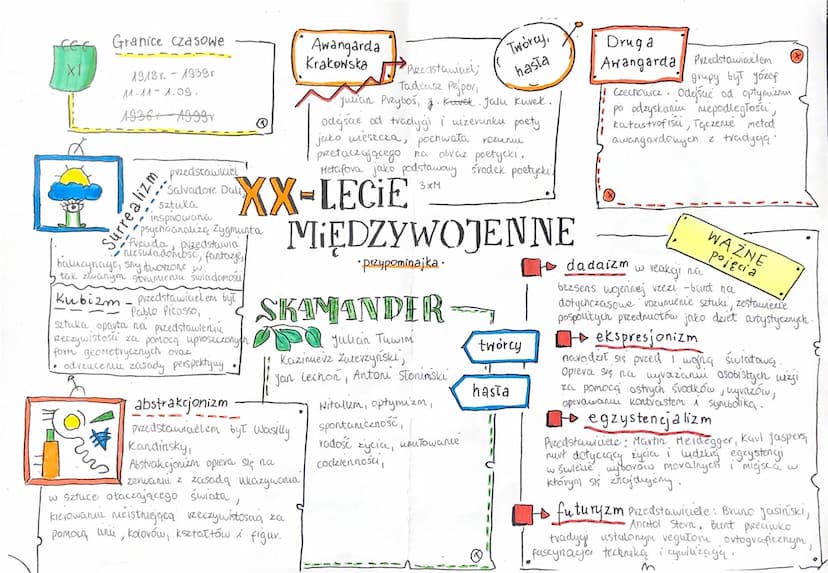 XI
Granice czasowe
1918r. - 1939r
11.11 - 1.09.
1936r - 1999r
Awangarda
Krakowska
Twórcy,
hasła
Przedstawiciel;
Tadeusz Pejper,
Julian Przyboś, J. Kurek. Jalu Kurek.
Odejście od tradycji i wizerunku poety
jako wieszcza, pochwała rozumu
przetaczającego na obraz poetycki.
Metafora jako podstawowy środek poetycki.
3xM
Druga
Awangarda
Przedstawicielem
grupy był Józef
Czechowicz. Odejście od optymizmu
po odzyskaniu niepodległości,
katastrofiści, łączenie metod
awangardowych z tradycją.
Surrealizm
przedstawiciel
Salvadore Dali,
sztuka
inspirowana
psychoanalizą Zygmunta
Freuda, przedstawia
nieświadomość, fantazję,
halucynacje, sny tworzone w
tak zwanym strumieniu świadomości
Kubizm - przedstawicielem był
Pablo Picasso,
sztuka oparta na przedstawieniu
rzeczywistości za pomocą uproszczonych
form geometrycznych oraz
odrzuceniu zasady perspektywy
XX-LECIE
MIĘDZYWOJENNE
·przypominajka·
SKAMANDER
Julian Tuwim
Kazimierz Zwierzyński,
Jan Lechoń, Antoni Słonimski
twórcy
hasła
Witalizm, optymizm,
spontaniczność,
radość życia, umiłowanie
codzienności,
abstrakcjonizm
przedstawicielem był Wasilly
Kandinsky,
Abstrakcjonizm opiera się na
zerwaniu z zasadą ukazywania
w sztuce otaczającego świata,
kierowaniu nieistniejącą rzeczywistością za
pomocą linii, kolorów, kształtów i figur.
WAŻNE
pojęcia
dadaizm w reakcji na
bezsens wojennej rzezi - bunt na
dotychczasowe rozumienie sztuki, zestawienie
pospolitych przedmiotów jako dzieł artystycznych.
ekspresjonizm
narodził się przed I wojną światową.
Opiera się na wyrażaniu osobistych wizji
za pomocą ostrych środków, wyrazów,
operowaniu kontrastem i symboliką.
egzystencjalizm
Przedstawiciele: Martin Heidegger, Karl Jaspers,
nurt dotyczący życia i ludzkiej egzystencji
w świecie wyborów moralnych i miejsca w
którym się znajdujemy.
futuryzm Przedstawiciele: Bruno Jasiński,
Anatol Stern. Bunt przeciwko
tradycji ustalonym regułom ortograficznym,
fascynacja techniką i cywilizacją.